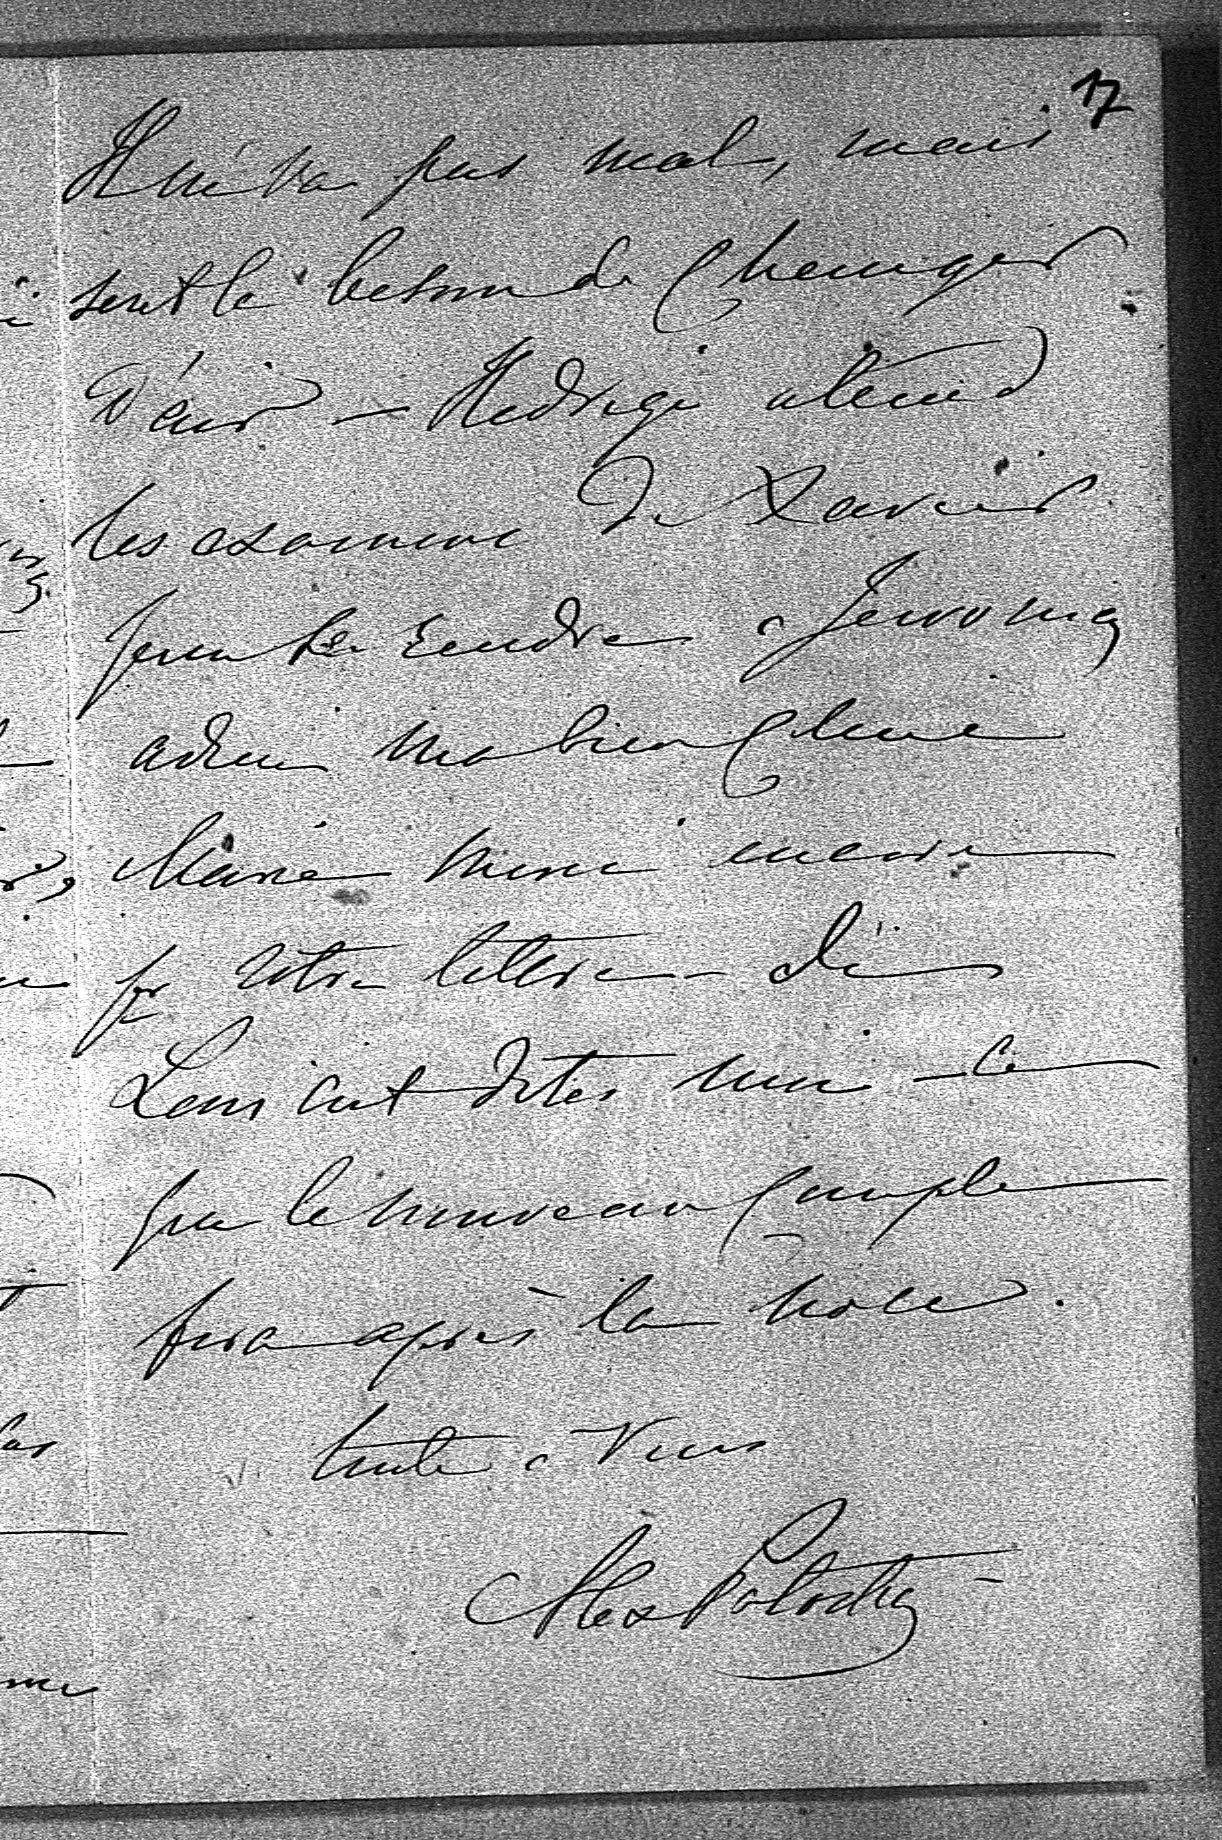 17
Il ne va pas mal, mais
sent le besoin de Changer
D'air — Hedvigi attend
les examens de Xavier
pour se rendre a
adieu ma bien Chere
Marie merci encore
pr votre lettre — d'ou
dites moi — ce
que le nouveau Couple
fera après la noce.
toute a Vous
Alex Potocka